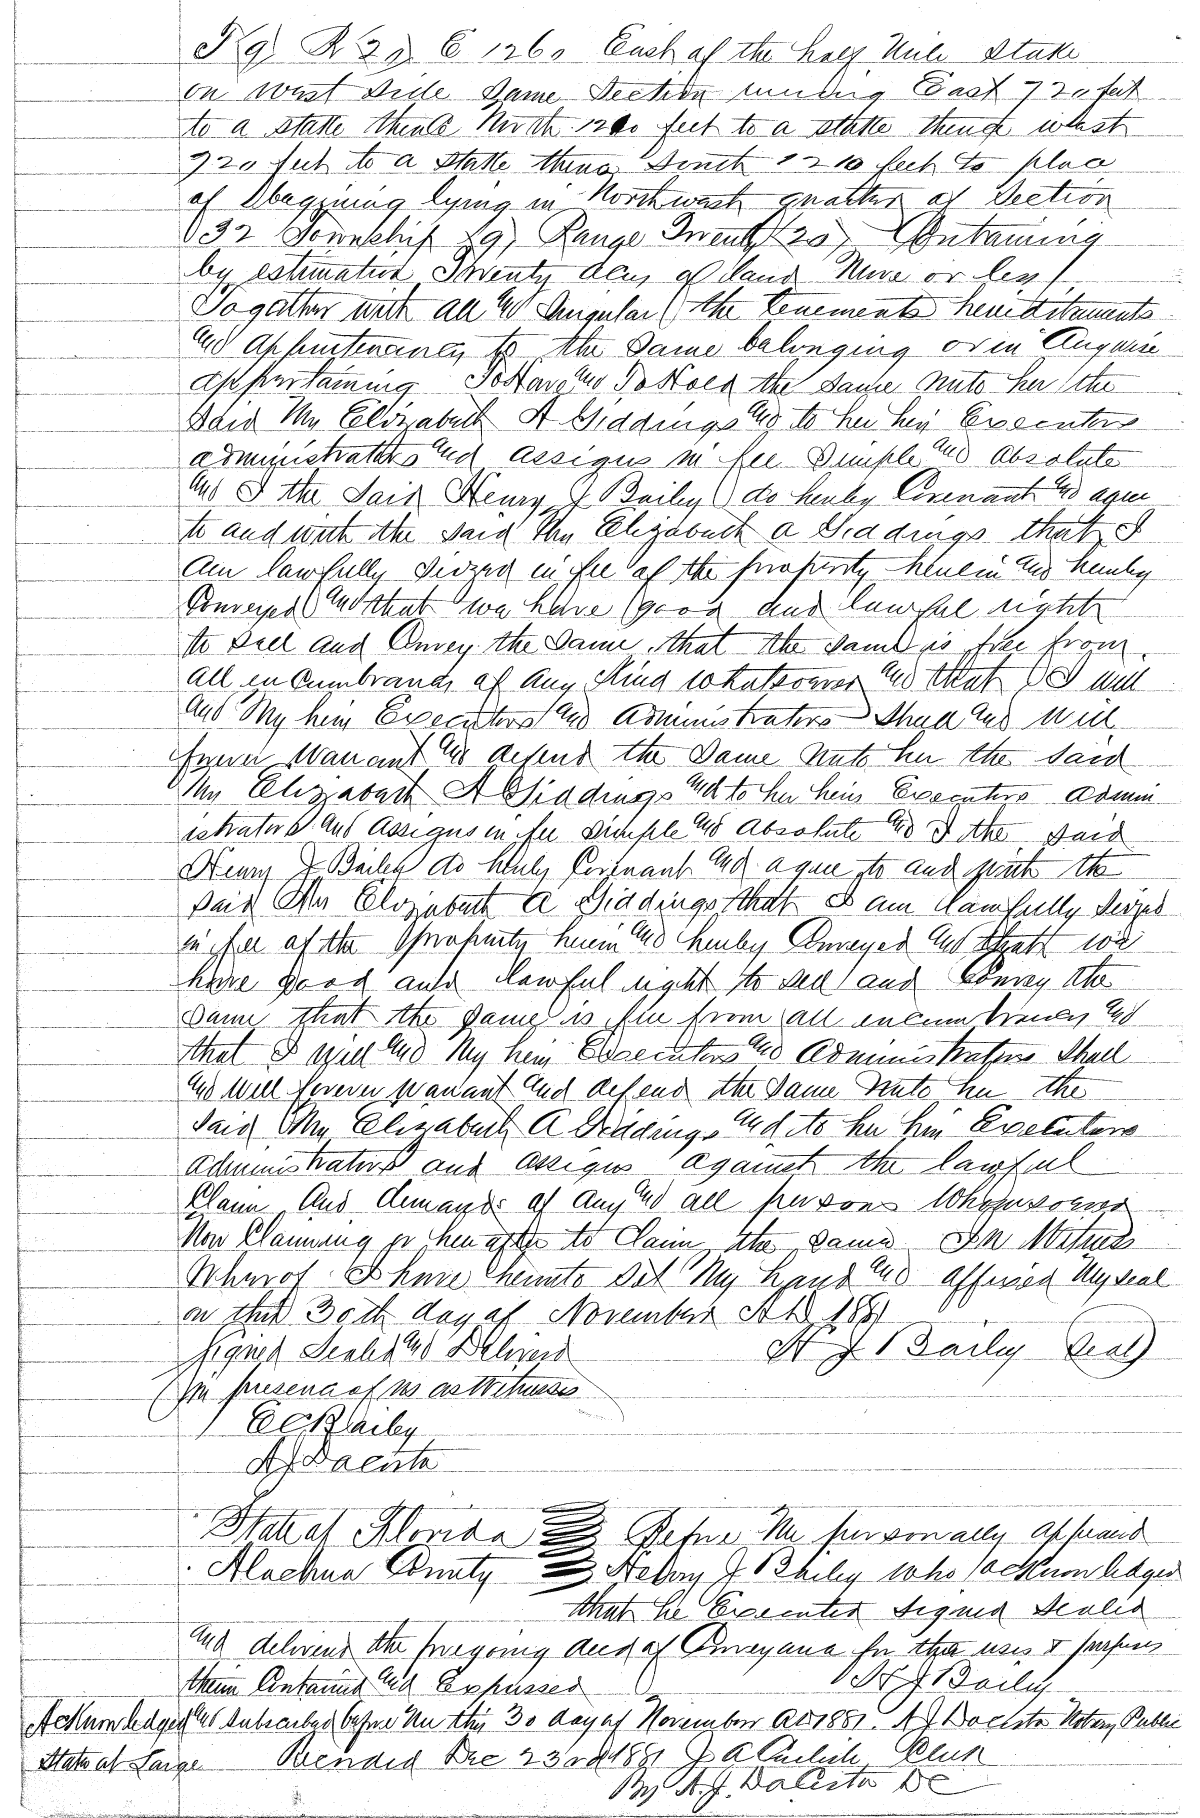 T 9) R 20 E 1260 East of the half Mile Stake
on west side Same Section running East 720 feet
to a stake thence North 1210 feet to a stake thence west
720 feet to a Stake thence South 1210 feet to place
of Beggining lying in Northwest quatter of Section
32 Township (9) Range Twenty (20) Containing
by estimation Twenty acres of land More or less
Together with all and Singular the tenements hereditaments
and appurtenances to the same belonging or in Anywise
appertaining To Have and To Hold the same unto her the
Said Mrs Elizabeth A Giddings and to her heirs Executors
administrators and assigns in fee Simple and absolute
and I the Said Henry J Bailey do hereby Covenant and agree
to and with the said Mrs Elizabeth a Giddings that I
am lawfully Siezed in fee of the property herein and hereby
Conveyed and that we have good and lawful right
to sell and Convey the Same, that the same is free from
all encumbrances of any Kind whatsoever and that I will
and My heirs Executors and administrators Shall and will
forever warrant and defend the Same unto her the said
Mrs Elizabeth A Giddings and to her heirs Executors admin
istrators and assigns in fee simple and absolute and I the said
Henry J Bailey do hereby Covenant and agree to and with the
said Mrs Elizabeth A Giddings that I am lawfully Siezed
in fee of the property herein and hereby Conveyed and that we
have good and lawful right to sell and Convey the
same that the same is free from all encumbrances and
that I will and My heirs Executors and administrators Shall
and will forever warrant and defend the Same unto her the
said Mrs Elizabeth A Giddings and to her heirs Executors
administrators and assigns against the lawful
Claim and demands of any and all persons Whomsoever
Now Claiming or hereafter to Claim the same In Witness
Whereof I have hereunto set My hand and affixed My seal
on this 30th day of November A.D. 1881
Signed Sealed and Delivered H J Bailey (Seal)
in presence of us as Witnesses
E C Bailey
A J Dacosta
State of Florida Before Me personally appeared
Alachua County Henry J Bailey who acknowledged
that he Executed Signed Sealed
and delivered the foregoing deed of Conveyance for the uses & purposes
therein Contained and Expressed H J Bailey
Acknowledged and subscribed before Me this 30 day of November AD 1881. A J Dacosta Notary Public
State at Large Recorded Dec 23rd 1881 J A Carlisle Clerk
By A. J. DaCosta DC